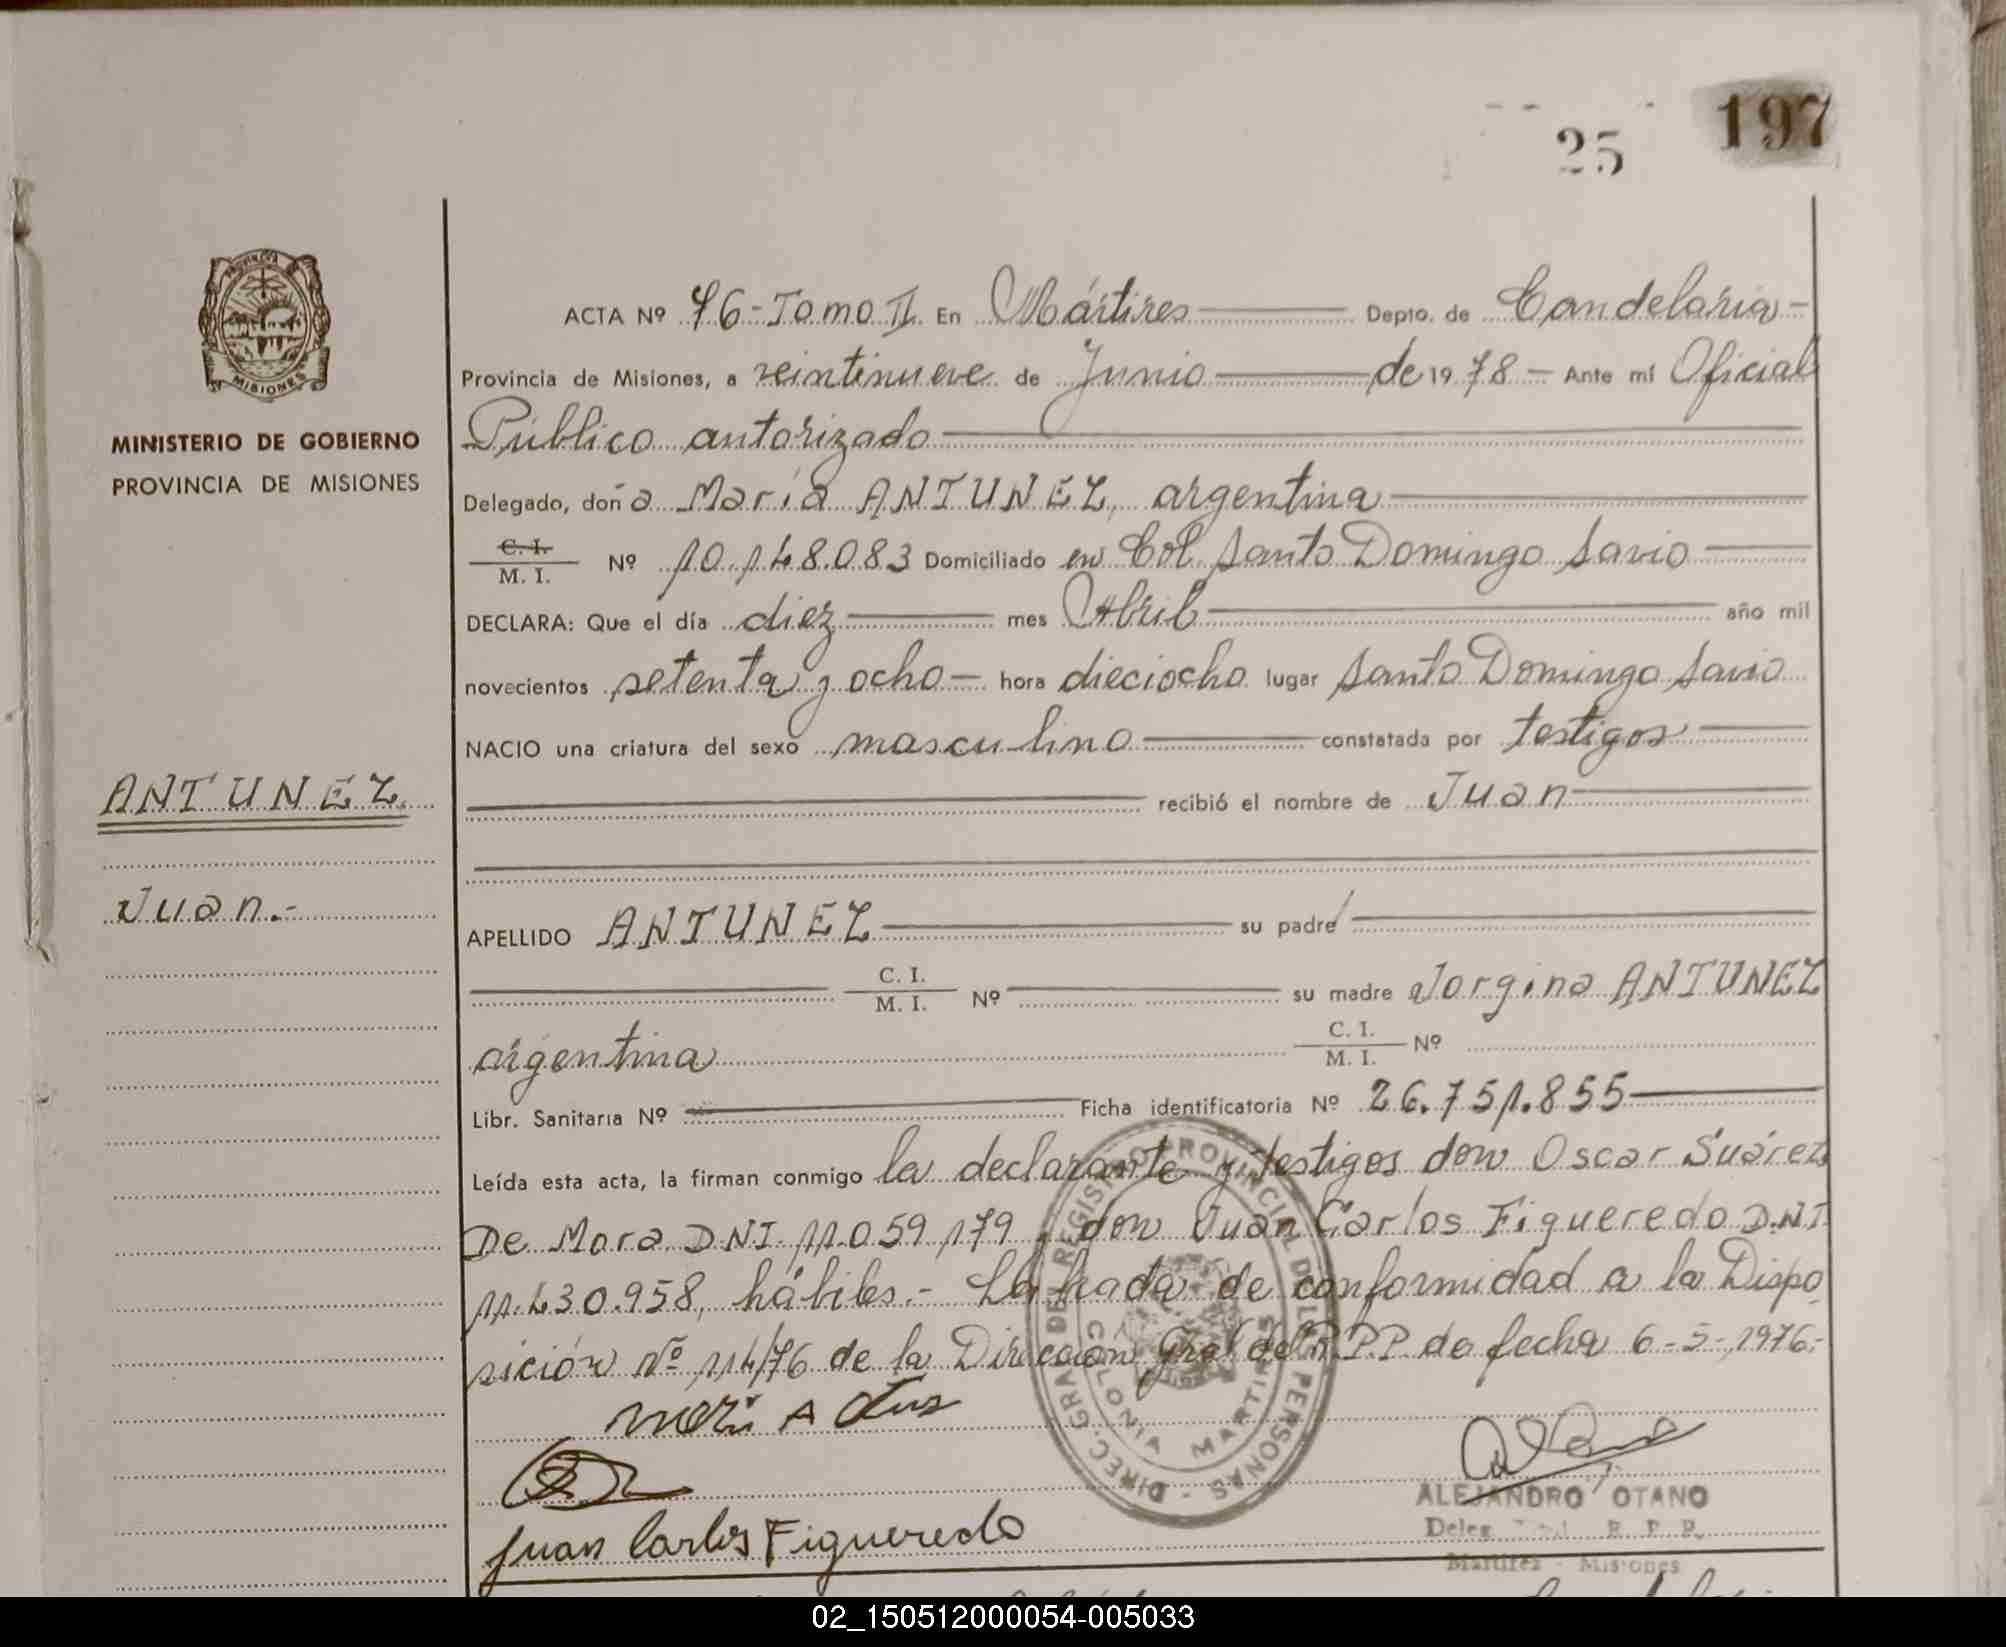 25 197
PROVINCIA DE
MISIONES
MINISTERIO DE GOBIERNO
PROVINCIA DE MISIONES
ANTUNEZ
Juan.-
ACTA Nº 76-Tomo II En Mártires Depto. de Candelaria-
Provincia de Misiones, a veintinueve de Junio de 1978 - Ante mí Oficial
Público autorizado
Delegado, doña María ANTUNEZ, argentina
C. I.
M. I. Nº 10.148.083 Domiciliado en Col. Santo Domingo Savio
DECLARA: Que el día diez mes Abril año mil
novecientos setenta y ocho - hora dieciocho lugar Santo Domingo Savio
NACIO una criatura del sexo masculino constatada por testigos
recibió el nombre de Juan
APELLIDO ANTUNEZ su padre
C. I.
M. I. Nº su madre Jorgina ANTUNEZ
argentina C. I.
M. I. Nº
Libr. Sanitaria Nº Ficha identificatoria Nº 26.751.855
Leída esta acta, la firman conmigo la declarante y testigos don Oscar Suárez
De Mora DNI. 11.059.179, don Juan Carlos Figueredo D.N.I.
11.430.958, hábiles.- Labrada de conformidad a la Dispo
sición Nº 114/76 de la Dirección Gral del R.P.P de fecha 6-5-1976.-
DIREC. GRAL DEL REGISTRO PROVINCIAL DE LAS PERSONAS -
COLONIA MARTIRES
Juan Carlos Figueredo
ALEJANDRO OTANO
Deleg. R. P. P.
Martires - Misiones
02_150512000054-005033